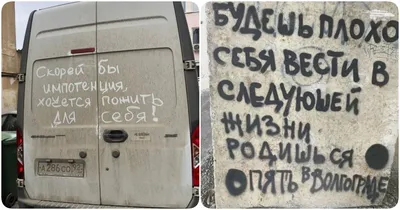 Скорей бы
импотенция,
хочется пожить
для себя!
А286СО
БУДЕШЬ ПЛОХО
СЕБЯ ВЕСТИ В
СЛЕДУЮШЕЙ
ЖИЗНИ
РОДИШЬСЯ
ОПЯТЬ В ВОЛГОГРАДЕ